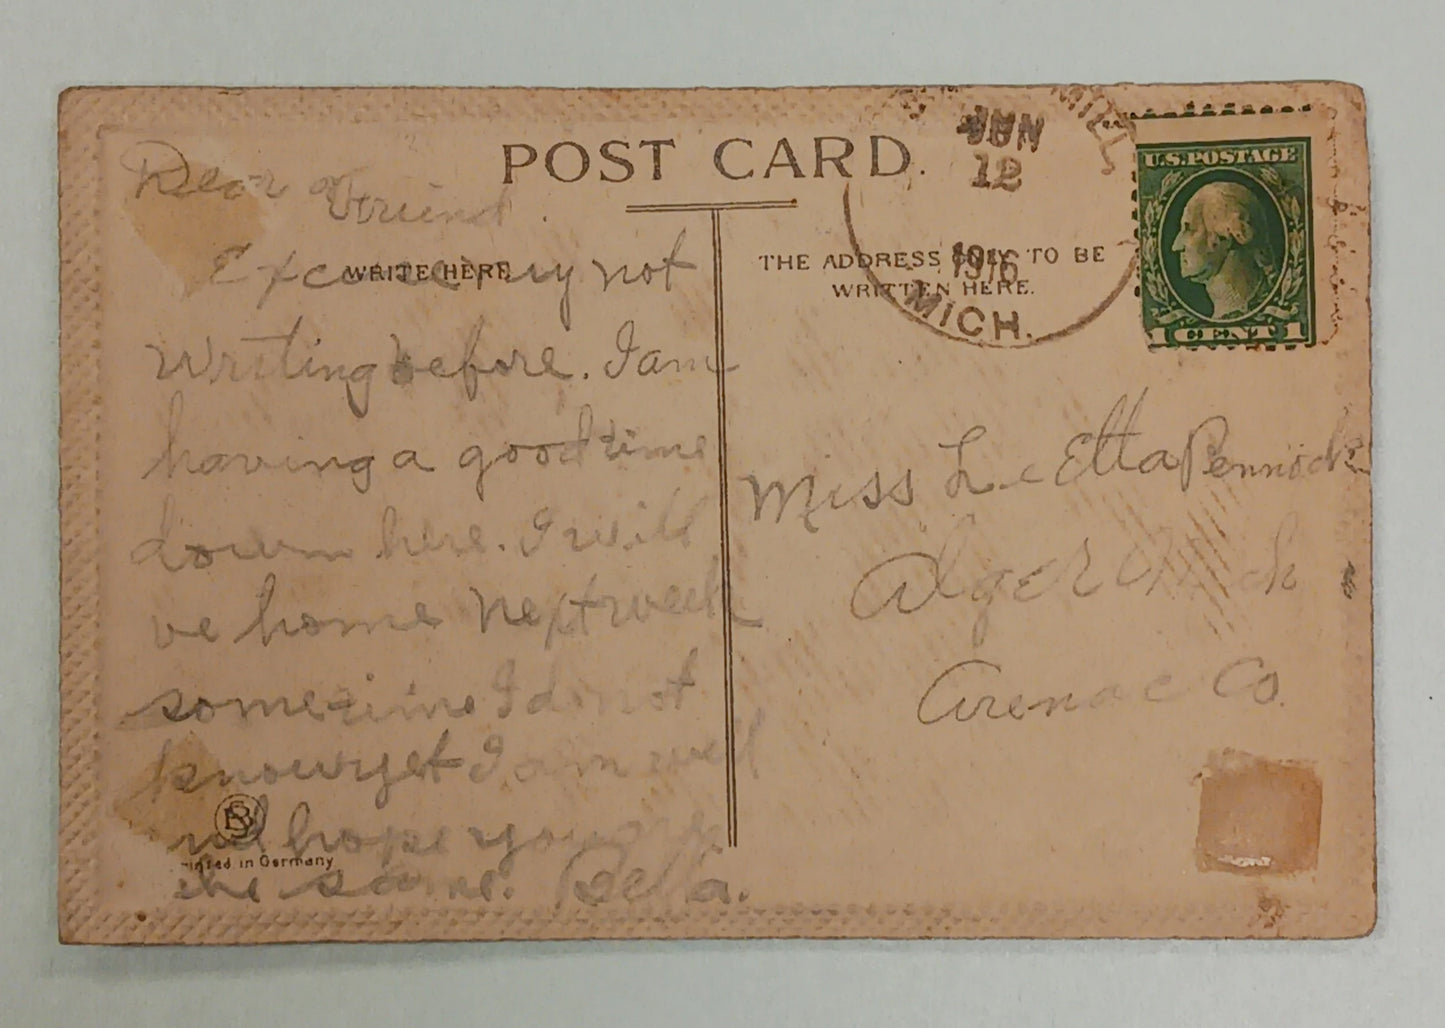 POST CARD.
WRITE HERE
Dear Friend.
Excuse my not
writing before. I am
having a good time
down here. I will
be home next week
sometime I do not
know yet I am well
and hope you are
the same. Bella.
BS
Printed in Germany
THE ADDRESS ONLY TO BE
WRITTEN HERE.
MILL
JUN
12
1916
MICH.
U.S. POSTAGE
1 CENT 1
Miss La Etta Pennock
Alger Mich
Arenac Co.